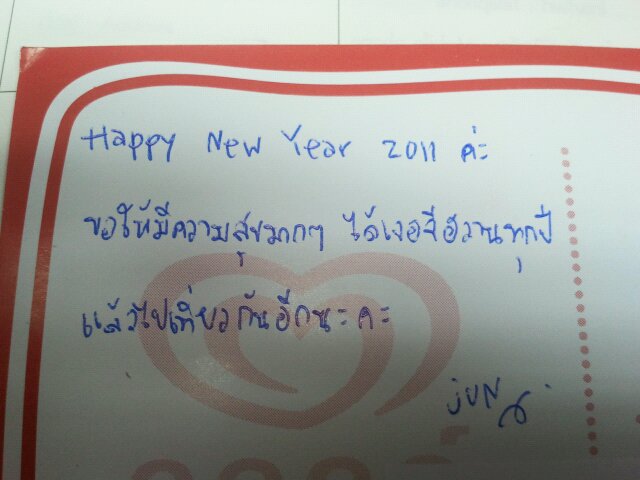 Happy New Year 2011 ค่ะ
ขอให้มีความสุขมากๆ ได้เจอจีฮวานทุกปี
แล้วไปเที่ยวกันอีกนะคะ
jun